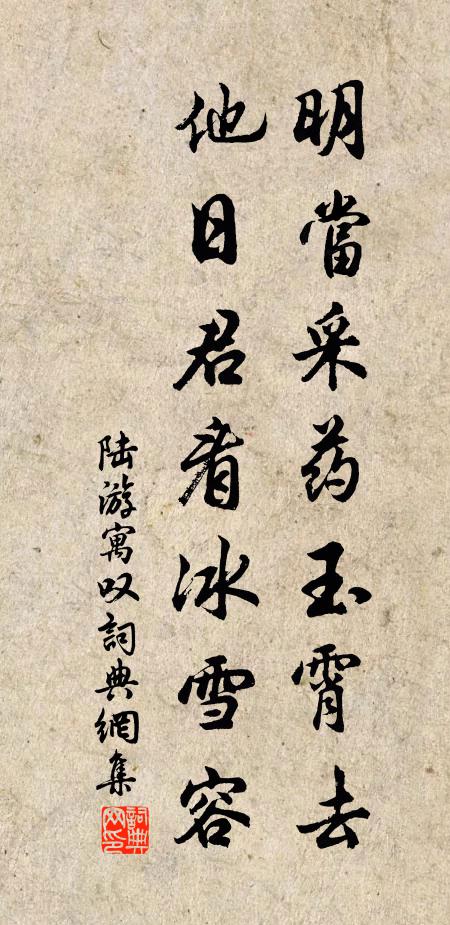 明當采药玉霄去
他日君看冰雪容
陆游寓叹詞典網集
詞典网印